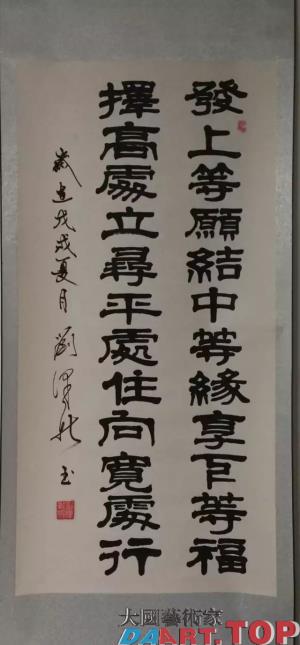 發上等願結中等緣享下等福
擇高處立尋平處住向寬處行
歲進戊戌夏月 劉
大國藝術家
DAART.TOP